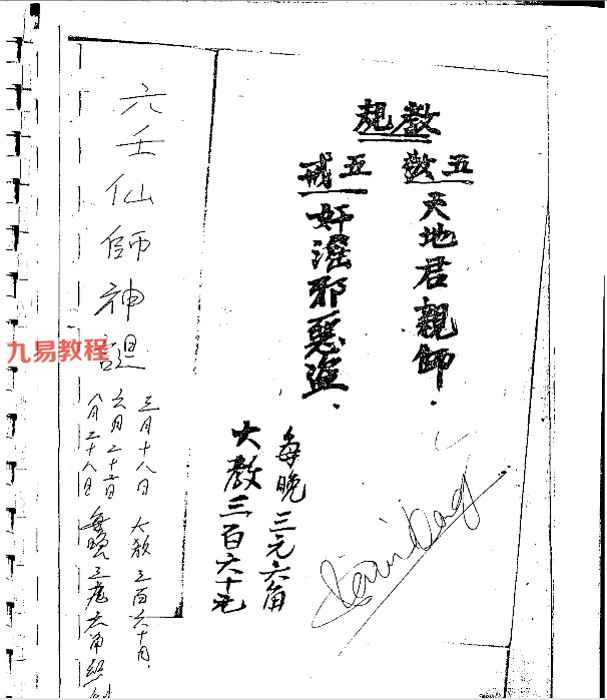 教規
五教
天地君親師.
五戒
奸滛邪惡盜.
每晚三元六角
大教三百六十元
六壬仙師神誕
三月十八日 大教三百六十月.
六月二十六日
八月二十八日 每晚三元六角
九易教程